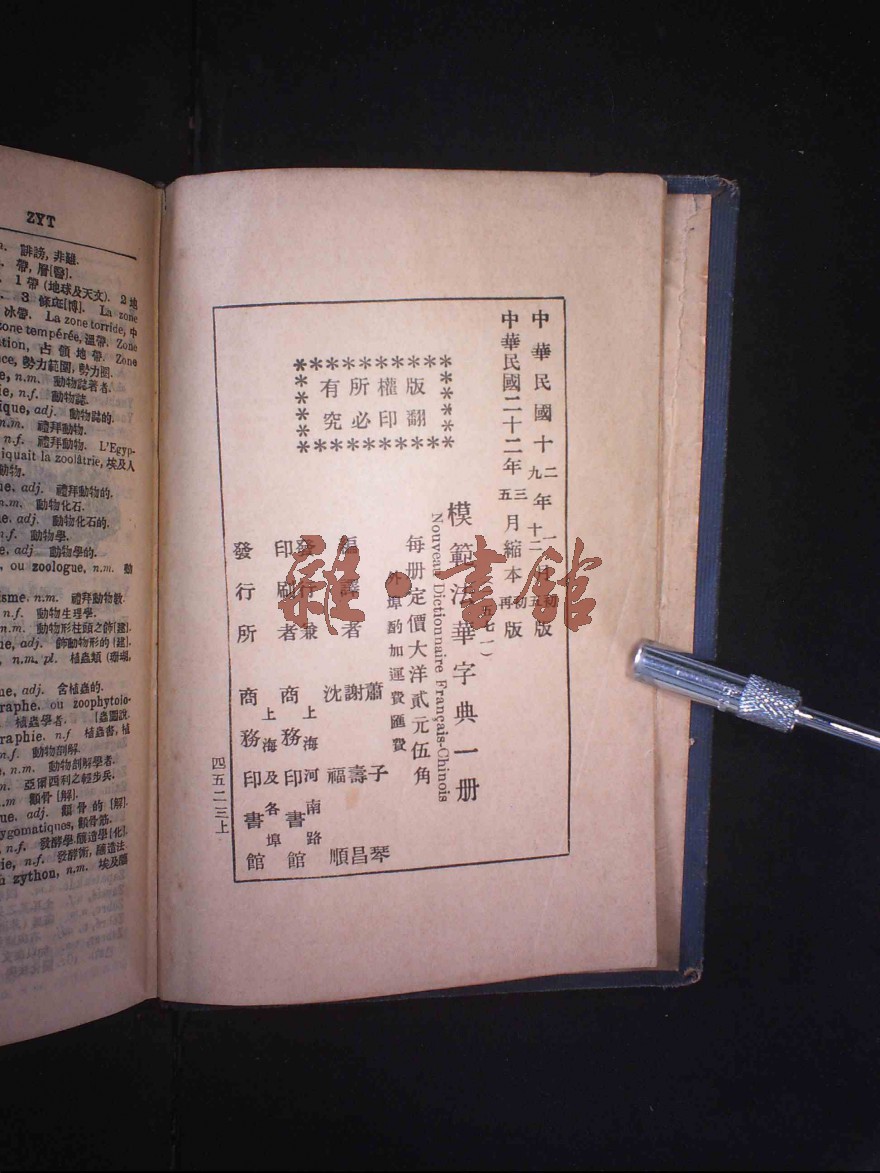 ZYT
誹謗, 非難.
帶, 層[醫].
1 帶 (地球及天文). 2 地
3 條斑[博]. La zone
冰帶. La zone torride, 中
zone tempérée, 溫帶. Zone
ation, 占領地帶. Zone
ce, 勢力範圍, 勢力圈.
e, n.m. 動物誌著者.
ie, n.f. 動物誌.
ique, adj. 動物誌的.
n.m. 禮拜動物.
n.f. 禮拜動物. L'Egyp-
iquait la zoolâtrie, 埃及人
動物.
ue, adj. 禮拜動物的.
n.m. 動物化石.
ue, adj. 動物化石的.
n.f. 動物學.
ue, adj 動物學的.
, ou zoologue, n.m. 動
isme, n.m. 禮拜動物教.
n.f. 動物生理學.
n.m. 動物形柱頭之飾[建].
ue, adj. 飾動物形的[建].
n.m. pl. 植蟲類 (珊瑚,
ue, adj. 含植蟲的.
raphe, ou zoophytolo-
植蟲學者. [蟲圖說.
raphie, n.f 植蟲書, 植
n.f. 動物剖解.
, n.m. 動物剖解學者.
n.m. 亞爾西利之輕步兵.
n.m 顴骨[解].
ue, adj. 顴骨的[解].
ygomatiques, 顴骨筋.
n.f. 發酵學, 釀造學[化].
ie, n.f. 發酵術, 釀造法
u zython, n.m. 埃及釀
中華民國十二年一月初版
九 十二 五
中華民國二十二年三月縮本初版
五 再
版權所有
翻印必究
(五七一)
模範法華字典一册
Nouveau Dictionnaire Français-Chinois
每册定價大洋貳元伍角
外埠酌加運費匯費
編譯者 蕭子琴 謝壽昌 沈福順
發行兼印刷者 上海河南路 商務印書館
發行所 上海及各埠 商務印書館
四五二三上
雜·書館